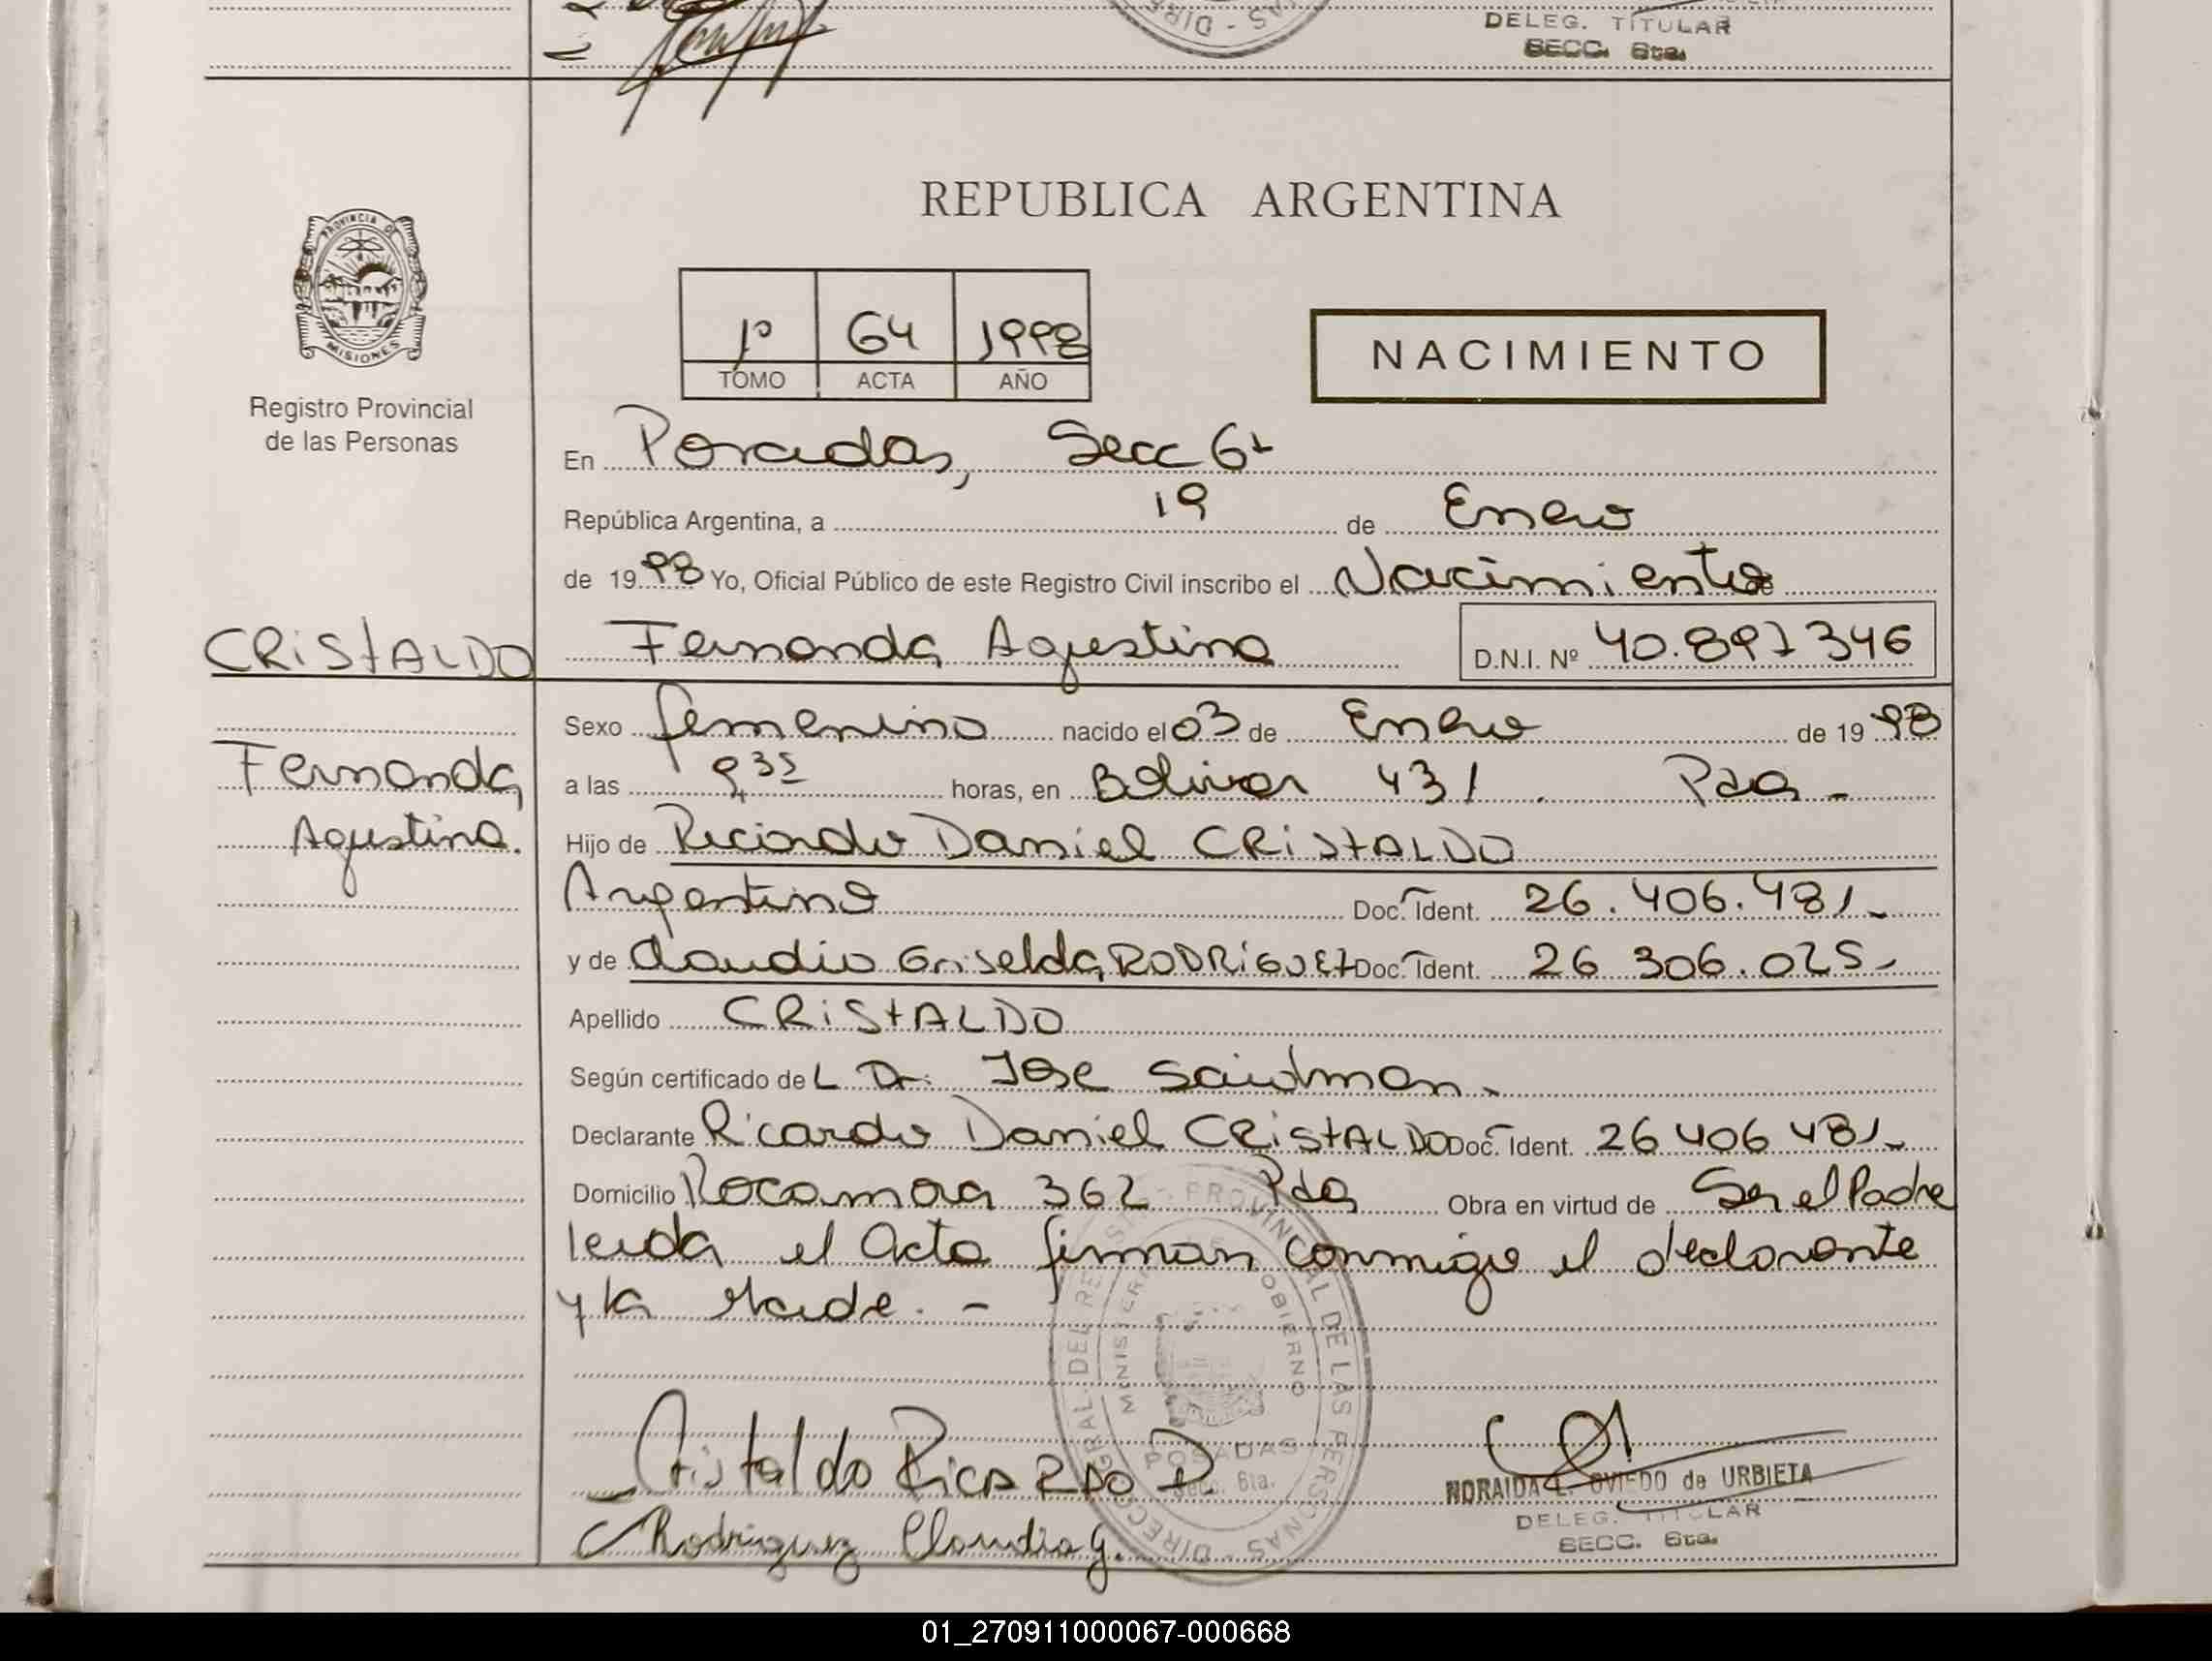 DELEG. TITULAR
SECC. 6ta.
PROVINCIA DE
MISIONES
Registro Provincial
de las Personas
REPUBLICA ARGENTINA
1º 64 1998
TOMO ACTA AÑO
NACIMIENTO
En Posadas, Secc 6ta
República Argentina, a 19 de Enero
de 1998 Yo, Oficial Público de este Registro Civil inscribo el Nacimiento de
CRISTALDO Fernanda Agustina D.N.I. Nº 40.897346
Sexo femenino nacido el 03 de Enero de 1998
Fernanda
a las 9,35 horas, en Bolivar 431. Pdas -
Agustina.
Hijo de Ricardo Daniel CRISTALDO
Argentino Doc. Ident. 26.406.481-
y de Claudia Griselda RODRIGUEZ Doc. Ident. 26 306.025-
Apellido CRISTALDO
Según certificado del Dr. Jose Saidman-
Declarante Ricardo Daniel CRISTALDO Doc. Ident. 26 406 481-
Domicilio Rocamora 362 Pdas Obra en virtud de Ser el Padre
leida el Acta firman conmigo el declarante
y la Madre. -
DIRECC GRAL. DEL REGISTRO PROVINCIAL DE LAS PERSONAS
MINISTERIO DE GOBIERNO
POSADAS
Secc. 6ta.
Cristaldo Ricardo D.
Rodriguez Claudia G.
NORAIDA L. OVIEDO de URBIETA
DELEG. TITULAR
SECC. 6ta.
01_270911000067-000668